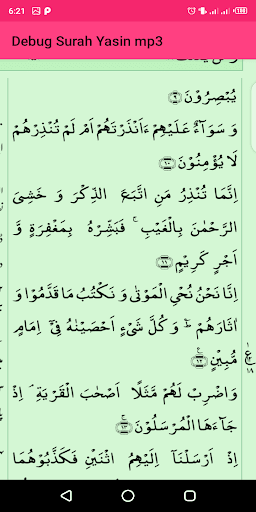 6:21
Debug Surah Yasin mp3
يُبْصِرُوْنَ ۝٩
وَ سَوَآءٌ عَلَيْهِمْ ءَاَنْذَرْتَهُمْ اَمْ لَمْ تُنْذِرْهُمْ
لَا يُؤْمِنُوْنَ ۝١٠
اِنَّمَا تُنْذِرُ مَنِ اتَّبَعَ الذِّكْرَ وَ خَشِىَ
الرَّحْمٰنَ بِالْغَيْبِ ۚ فَبَشِّرْهُ بِمَغْفِرَةٍ وَّ
اَجْرٍ كَرِيْمٍ ۝١١
اِنَّا نَحْنُ نُحْىِ الْمَوْتٰى وَ نَكْتُبُ مَا قَدَّمُوْا وَ
اٰثَارَهُمْ ؕ وَ كُلَّ شَىْءٍ اَحْصَيْنٰهُ فِىْۤ اِمَامٍ
مُّبِيْنٍ ۝١٢
وَاضْرِبْ لَهُمْ مَّثَلًا اَصْحٰبَ الْقَرْيَةِ ۘ اِذْ
جَآءَهَا الْمُرْسَلُوْنَ ۝١٣
اِذْ اَرْسَلْنَاۤ اِلَيْهِمُ اثْنَيْنِ فَكَذَّبُوْهُمَا